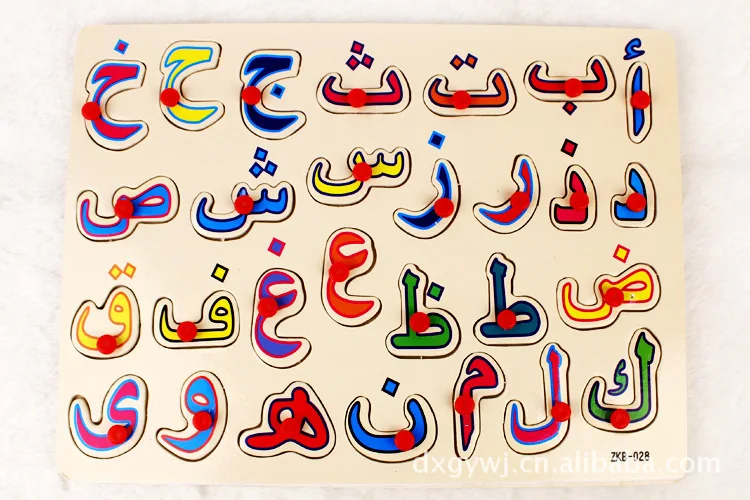 أ ب ت ث ج ح خ
د ذ ر ز س ش ص
ض ط ظ ع غ ف ق
ك ل م ن ه و ى
ZKB-028
dxgywj.cn.alibaba.com